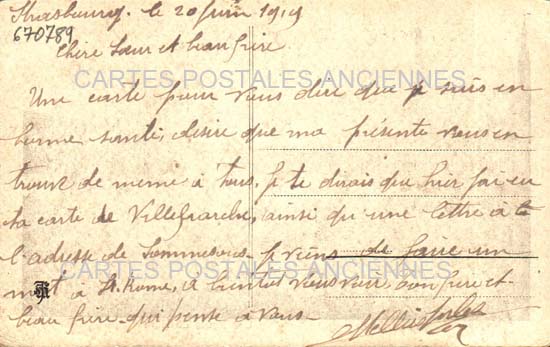 Strasbourg. le 20 juin 1919
670789
Chère Sœur et beau frère
CARTES POSTALES ANCIENNES
Une carte pour vous dire que je suis en
bonne santé, désire que ma présente vous en
trouve de meme à tous. Je te dirais que hier j'ai eu
ta carte de Villefranche, ainsi qu'une lettre à
l'adresse de Sommesous. je viens de faire un
CARTES POSTALES ANCIENNES
mot à A bientot vous voir, bon frère et
beau frère qui pense à vous